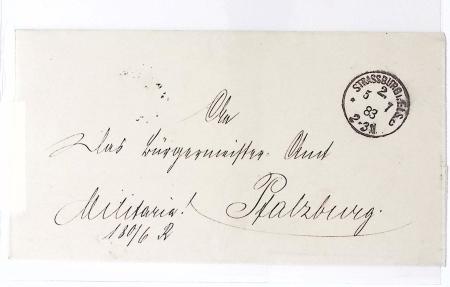 STRASSBURG i. ELS.
2. 7
5 6
83
2-3N.
An
Das Bürgermeister-Amt
Militaria! Pfalzburg.
180/6 R